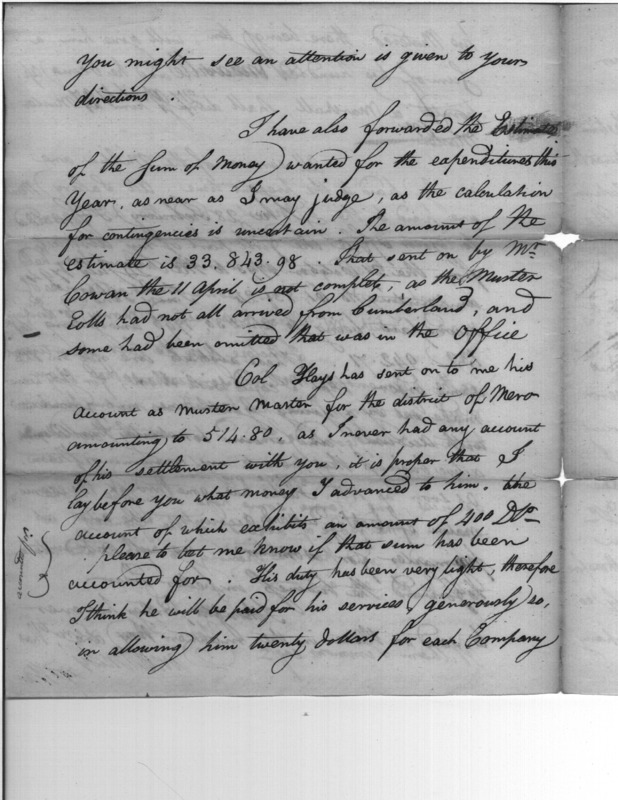 You might see an attention is given to your
directions.
I have also forwarded the Estimate
of the Sum of Money wanted for the expenditures this
Year, as near as I may judge, as the calculation
for contingencies is uncertain. The amount of the
estimate is 33.843.98. That sent on by Mr.
Cowan the 11 April is not complet, as the Muster
Rolls had not all arrived from Cumberland, and
some had been omitted that was in the Office
Col Hays has sent on to me his
account as muster master for the district of Mero
amounting to 514.80, as I never had any account
of his settlement with you, it is proper that I
lay before you what money I advanced to him. the
account of which exhibits an amount of 400 Drs
please to let me know if that sum has been
accounted for. His duty has been very light, therefore
I think he will be paid for his services, generously so,
in allowing him twenty dollars for each Company